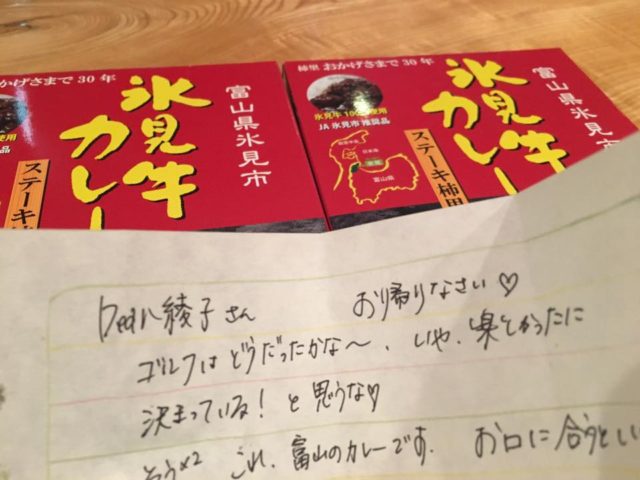 かげさまで30年
富山県氷見市
氷見牛
カレー
ステーキ
柿里 おかげさまで30年
富山県氷見市
氷見牛
カレー
氷見牛100%使用
JA氷見市 推奨品
日本海
富山県
ステーキ柿里
Dear 綾子さん おかえりなさい♡
ゴルフはどうだったかな〜、いや、楽しかったに
決まっている! と思うな♡
そう×2 これ、富山のカレーです. お口に合うとい